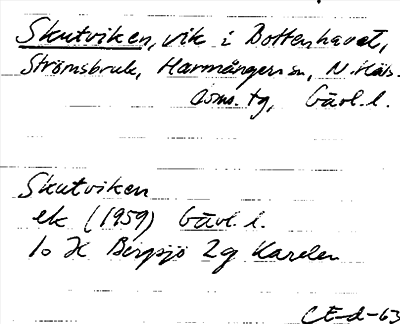 Skutviken, vik i Bottenhavet,
Strömsbruk, Harmångers sn, N. Häls.
doms. tg, Gävl. l.
Skutviken
ek (1959) Gävl. l.
10 H Bergsjö 2g Karelen
CE-d-63